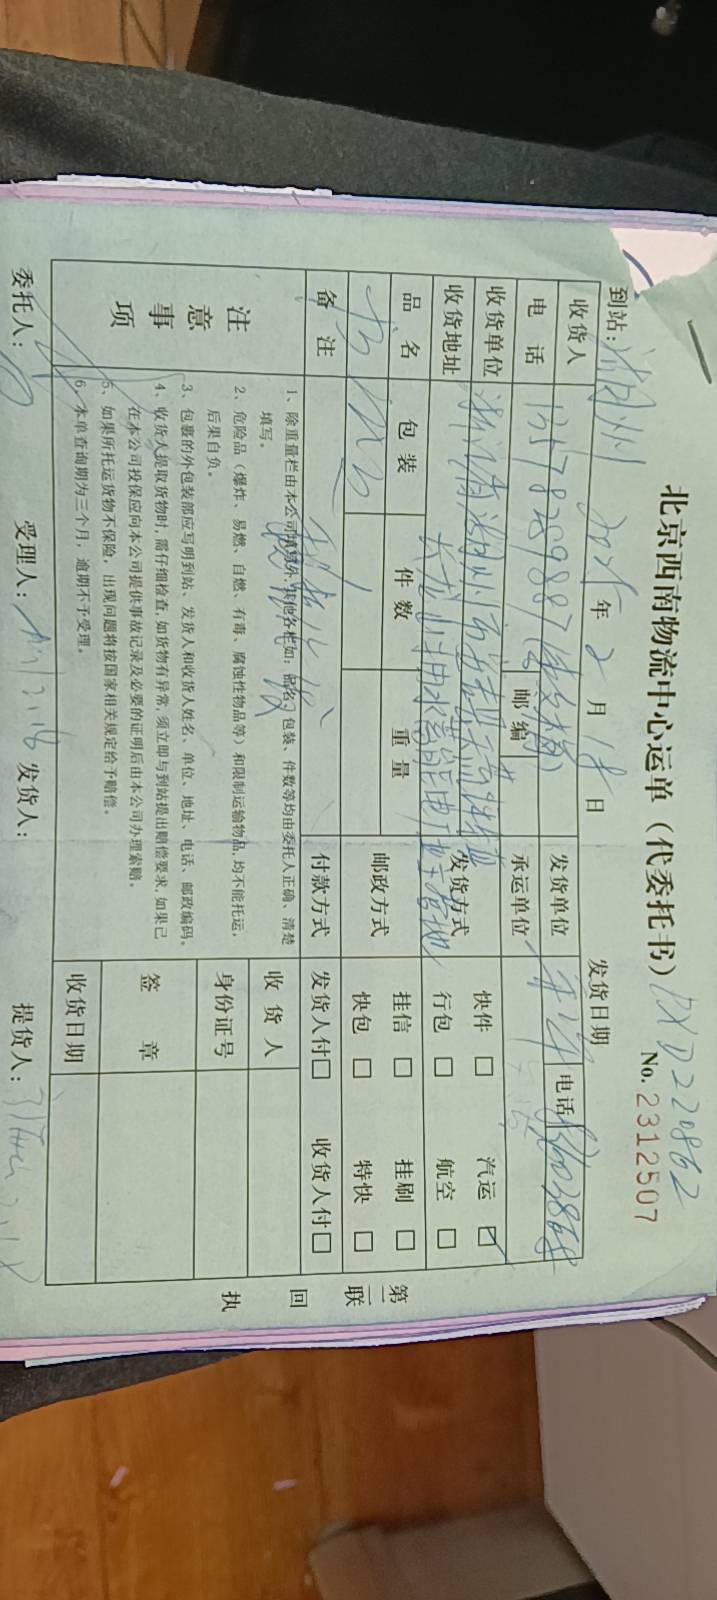 北京西南物流中心运单（代委托书）DXD220862
No. 2312507
到站：湖州 2025年2月18日 发货日期
收货人 发货单位 电话
电话 13578289887 邮编 承运单位
收货单位 浙江省湖州市安吉县天荒坪镇
收货地址 长龙山抽水蓄能电厂
发货方式 快件 □ 汽运 ☑
行包 □ 航空 □
品名 包装 件数 重量
邮政方式 挂信 □ 挂刷 □
快包 □ 特快 □
备注 付款方式 发货人付□ 收货人付□
注意事项
1、除重量栏由本公司填写外，其他各栏如：品名、包装、件数等均由委托人正确、清楚
填写。
2、危险品（爆炸、易燃、自燃、有毒、腐蚀性物品等）和限制运输物品，均不能托运，
后果自负。
3、包裹的外包装部应写明到站、发货人和收货人姓名、单位、地址、电话、邮政编码。
4、收货人提取货物时，需仔细检查，如货物有异常，须立即与到站提出赔偿要求，如果已
在本公司投保应向本公司提供事故记录及必要的证明后由本公司办理索赔。
5、如果所托运货物不保险，出现问题将按国家相关规定给予赔偿。
6、本单查询期为三个月，逾期不予受理。
收货人
身份证号
签章
收货日期
第二联
回执
委托人： 受理人： 发货人： 提货人：